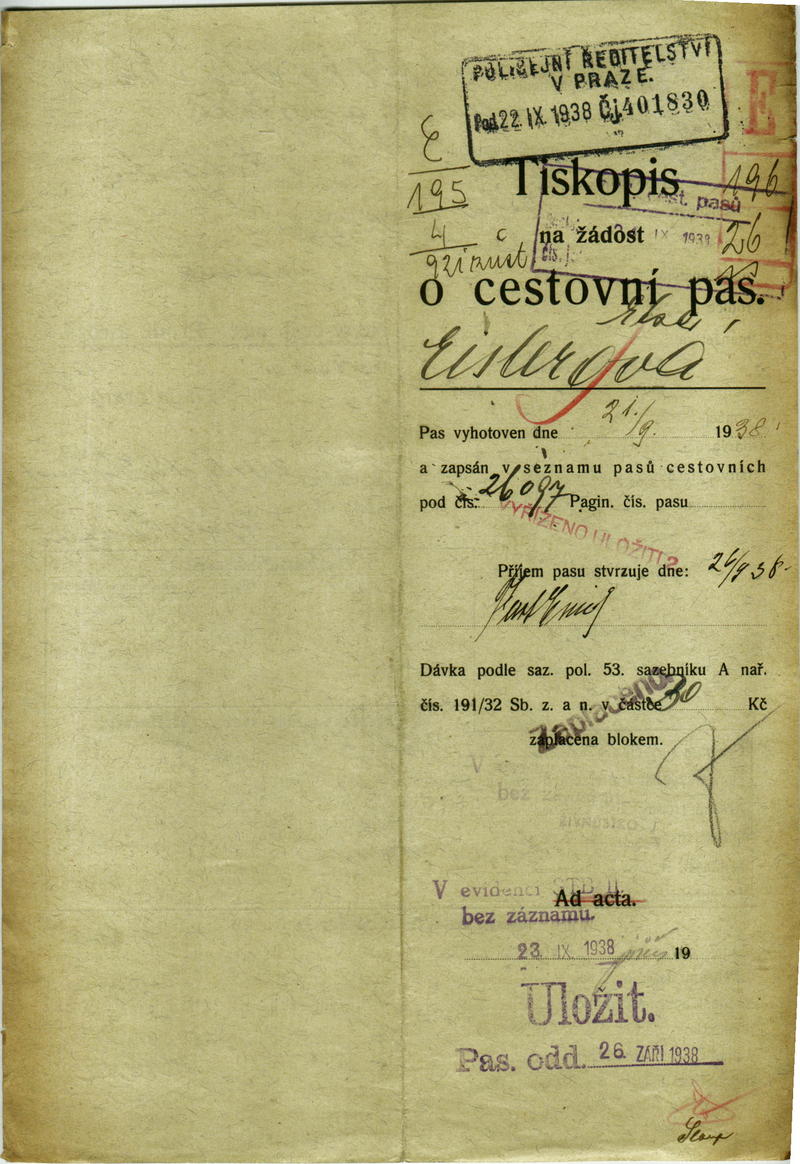 POLICEJNÍ ŘEDITELSTVÍ
V PRAZE.
Pod. 22. IX. 1938 Čj. 401830
E
E
195
4
Tiskopis
196
pasů
na žádost
IX 1938
26
o cestovní pas.
Eislerová
Pas vyhotoven dne 21./9. 1938
a zapsán v seznamu pasů cestovních
pod čís. 26097 Pagin. čís. pasu
VYŘÍZENO ULOŽITI
Příjem pasu stvrzuje dne: 26/9 38
Dávka podle saz. pol. 53. sazebníku A nař.
čís. 191/32 Sb. z. a n. v částce 30 Kč
Zaplaceno
zaplacena blokem.
V evidenci STB II.
Ad acta.
bez záznamu.
23. IX. 1938 19
Uložit.
Pas. odd. 26. ZÁŘÍ 1938